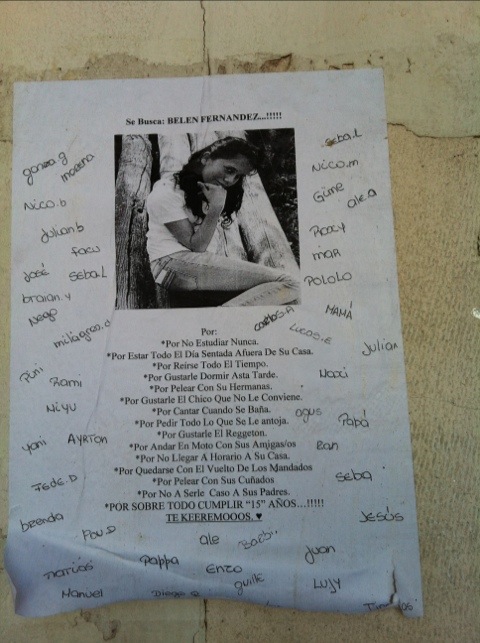 Se Busca: BELEN FERNANDEZ...!!!!!
gonza.g
morena
seba.L
Nico.m
Nico.b
Gime
ale.a
Julian.b
Roxy
facu
mar
José
Seba.L
POLOLO
braian.y
Nego
carlos.A
MAMÁ
milagros.d
Lucas.E
Julian
Por:
*Por No Estudiar Nunca.
*Por Estar Todo El Día Sentada Afuera De Su Casa.
*Por Reirse Todo El Tiempo.
*Por Gustarle Dormir Asta Tarde.
*Por Pelear Con Su Hermanas.
*Por Gustarle El Chico Que No Le Conviene.
*Por Cantar Cuando Se Baña.
*Por Pedir Todo Lo Que Se Le antoja.
*Por Gustarle El Reggeton.
*Por Andar En Moto Con Sus Amigas/os
*Por No Llegar A Horario A Su Casa.
*Por Quedarse Con El Vuelto De Los Mandados
*Por Pelear Con Sus Cuñados
*Por No A Serle Caso A Sus Padres.
*POR SOBRE TODO CUMPLIR “15” AÑOS…!!!!!
TE KEEREMOOOS. ♥
Pini
Rami
Naxi
Niyu
agus
Papá
Yani
AYRTON
Ran
FeDe.D
Seba
brenda
Pau.D
JESÚS
ale
Barbi
Juan
Pappa
Enzo
Manuel
guille
LUJY